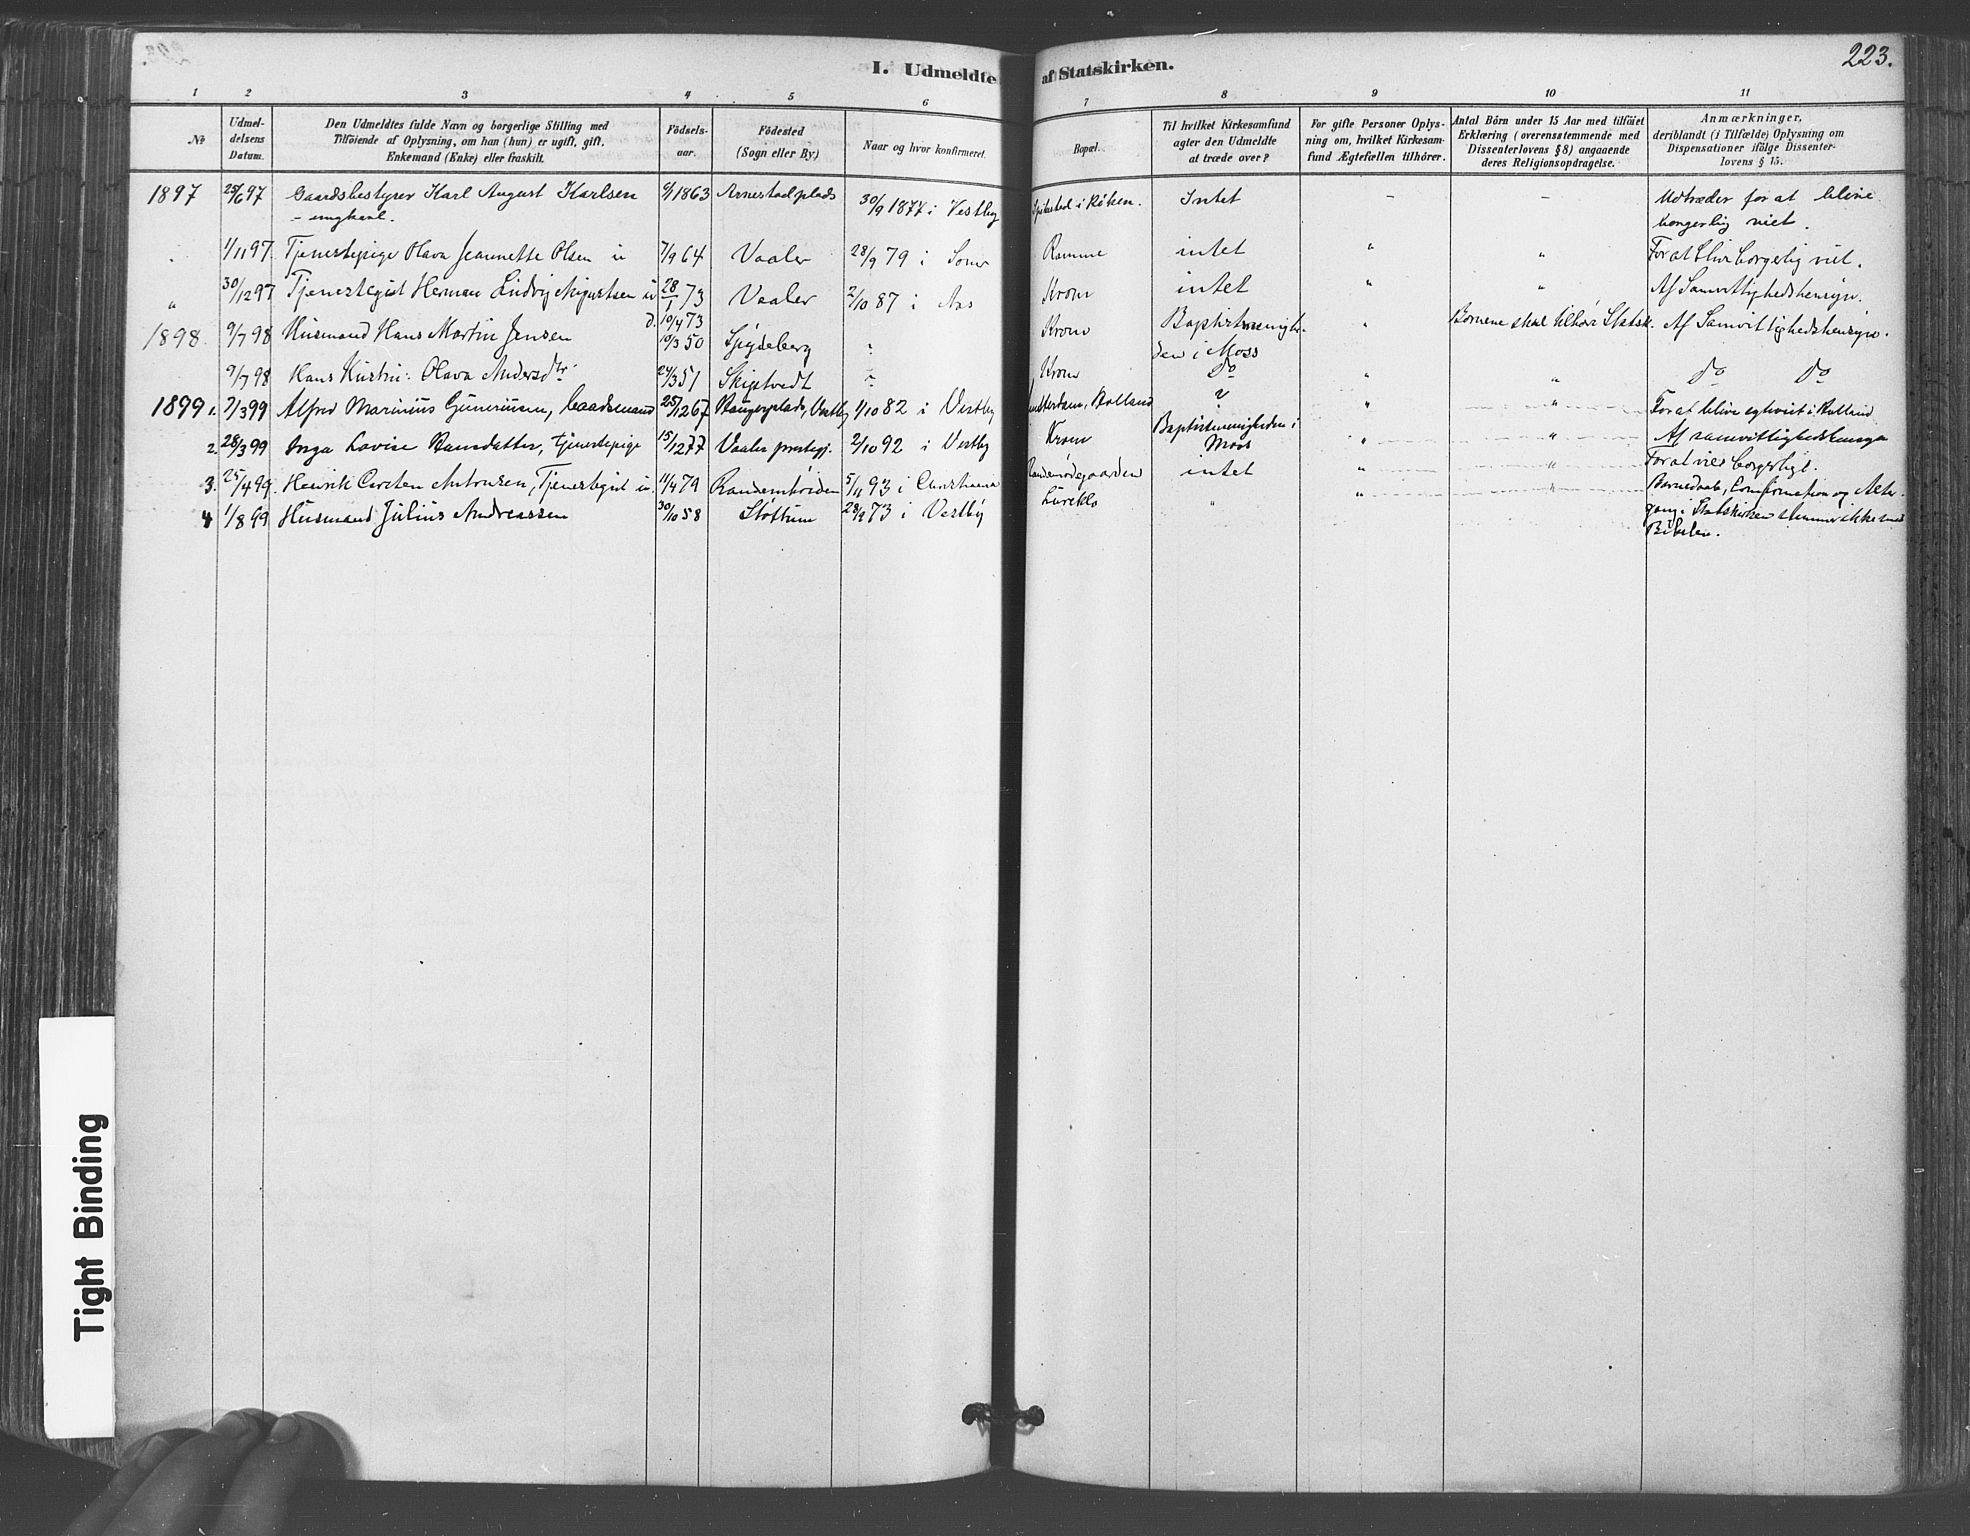 223.
I. Udmeldte af Statskirken.
1 2 3 4 5 6 7 8 9 10 11
№
Udmel-
delsens
Datum.
Den Udmeldtes fulde Navn og borgerlige Stilling med
Tilföiende af Oplysning, om han (hun) er ugift, gift,
Enkemand (Enke) eller fraskilt.
Födsels-
aar.
Födested
(Sogn eller By)
Naar og hvor konfirmeret.
Bopæl.
Til hvilket Kirkesamfund
agter den Udmeldte
at træde over?
For gifte Personer Oplys-
ning om, hvilket Kirkesam-
fund Ægtefællen tilhörer.
Antal Börn under 15 Aar med tilföiet
Erklæring (overensstemmende med
Dissenterlovens § 8) angaaende
deres Religionsopdragelse.
Anmærkninger,
deriblandt (i Tilfælde) Oplysning om
Dispensationer ifölge Dissenter-
lovens § 15.
1897 25/6 97 Gaardsbestyrer Karl August Karlsen 1863 Arnestad plads 30/9 1877 i Vestby i Röken. Intet – – Udtræder for at blive
– ungkarl. borgerlig viet.
1/11 97 Tjenestepige Olava Jeannette Olsen u 7/9 64 Vaaler 28/9 79 i Soner Ramme intet " " For at blive borgerlig viet.
" 30/12 97 Tjenestegut Herman Ludvig Sigurtsen u 28/1 73 Vaaler 2/10 87 i Aas Krom intet " " Af Samvittighedshensyn.
D. 10/4 73
1898. 9/7 98 Husmand Hans Martin Jensen 10/3 50 Spydeberg ? Krom Baptistmenighe- " Börnene skal tilhöre Statsk. Af Samvittighedshensyn.
den i Moss
9/7 98 Hans Hustru: Olava Andersdtr 24/3 51 Skiptvedt ? Krom Do " " Do Do
1899 1. 7/3 99 Alfred Marinius Gunerius­sen, 25/12 67 Vestby 1/10 82 i Vestby Holland ? " " For at blive egteviet i Holland
2. 28/3 99 Inga Lovise Hansdatter, tjenestepige 15/12 77 Vaaler prestegj. 2/10 92 i Vestby Krom Baptistmenigheden i " " Af samvittighedshensyn
Moss
3. 25/4 99. Henrik Carsten Antonsen, Tjenestegut u. 11/4 79 5/11 93 i Christiania intet " " For at vies borgerligt.
4 1/8 99 Husmand Julius Andreassen 30/10 58 Stöttum 28/9 73 i Vestby " " Barnedaab, Confirmation og Alter-
gang i Statskirken stemmer ikke med
Bibelen.
Tight Binding